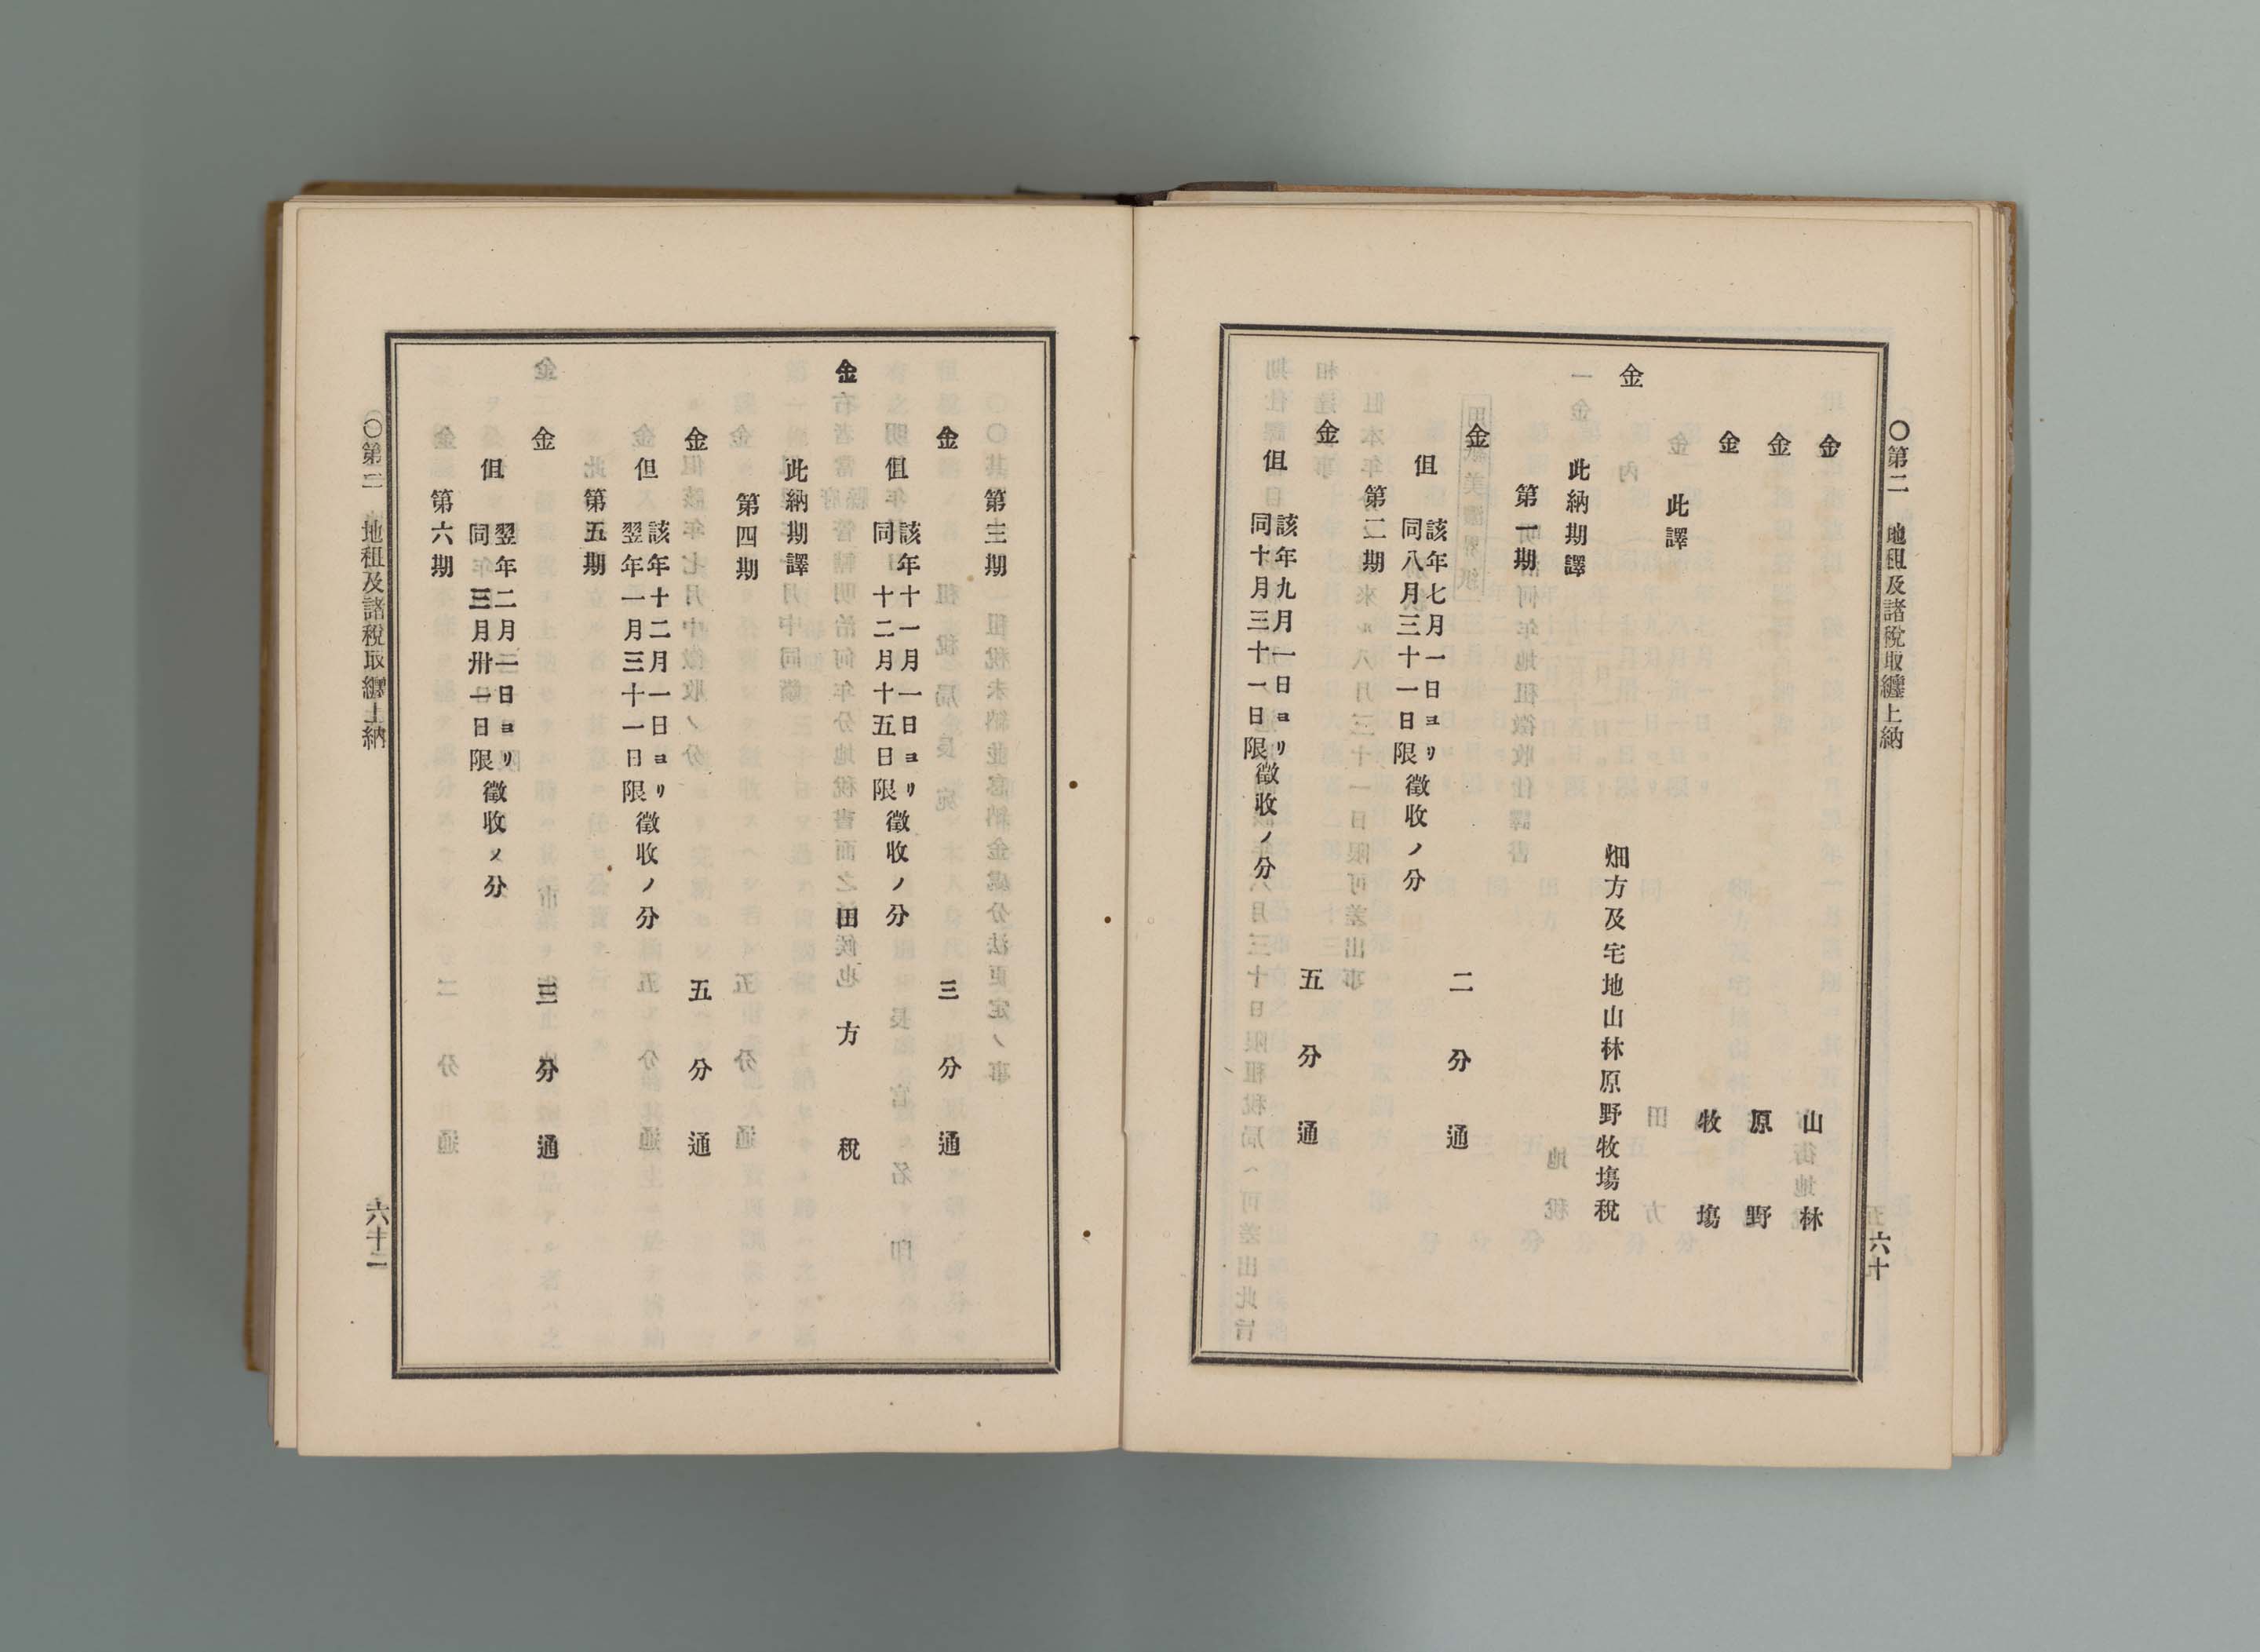 〇第二　地租及諸税取纏上納　六十
金　山林
金　原野
金　牧塲
此譯
金　畑方及宅地山林原野牧塲税
此納期譯
第一期
金　二分通
但該年七月一日ヨリ
同八月三十一日限徵收ノ分
第二期
金　五分通
但該年九月一日ヨリ
同十月三十一日限徵收ノ分
第三期
金　三分通
但該年十一月一日ヨリ
同十二月十五日限徵收ノ分
金　田方税
此納期譯
第四期
金　五分通
但該年十二月一日ヨリ
翌年一月三十一日限徵收ノ分
第五期
金　三分通
但翌年二月一日ヨリ
同三月卅一日限徵收ノ分
第六期
〇第二　地租及諸税取纏上納　六十一